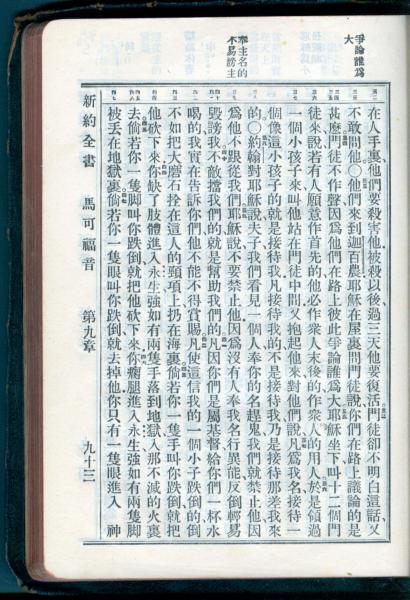 爭論誰爲
大
奉主名的
不易謗主
在人手裏、他們要殺害他、被殺以後、過三天他要復活、門徒卻不明白這話、又
不敢問他〇他們來到迦百農、耶穌在屋裏問門徒說、你們在路上議論的是
甚麼、門徒不作聲、因爲他們在路上彼此爭論誰爲大、耶穌坐下、叫十二個門
徒來、說、若有人願意作首先的、他必作衆人末後的、作衆人的用人、於是領過
一個小孩子來、叫他站在門徒中間、又抱起他來、對他們說、凡爲我名接待一
個像這小孩子的、就是接待我、凡接待我的、不是接待我、乃是接待那差我來
的〇約翰對耶穌說、夫子、我們看見一個人奉你的名趕鬼、我們就禁止他、因
爲他不跟從我們、耶穌說、不要禁止他、因爲沒有人奉我名行異能、反倒輕易
毀謗我、不敵擋我們的、就是幫助我們的、凡因你們是屬基督、給你們一杯水
喝的、我實在告訴你們、他不能不得賞賜、凡使這信我的一個小子跌倒的、倒
不如把大磨石拴在這人的頸項上、扔在海裏、倘若你一隻手叫你跌倒、就把
他砍下來、你缺了肢體進入永生、強如有兩隻手落到地獄、入那不滅的火裏
去、倘若你一隻脚叫你跌倒、就把他砍下來、你瘸腿進入永生、強如有兩隻脚
被丟在地獄裏、倘若你一隻眼叫你跌倒、就去掉他、你只有一隻眼進入　神
新約全書　馬可福音　第九章　九十三